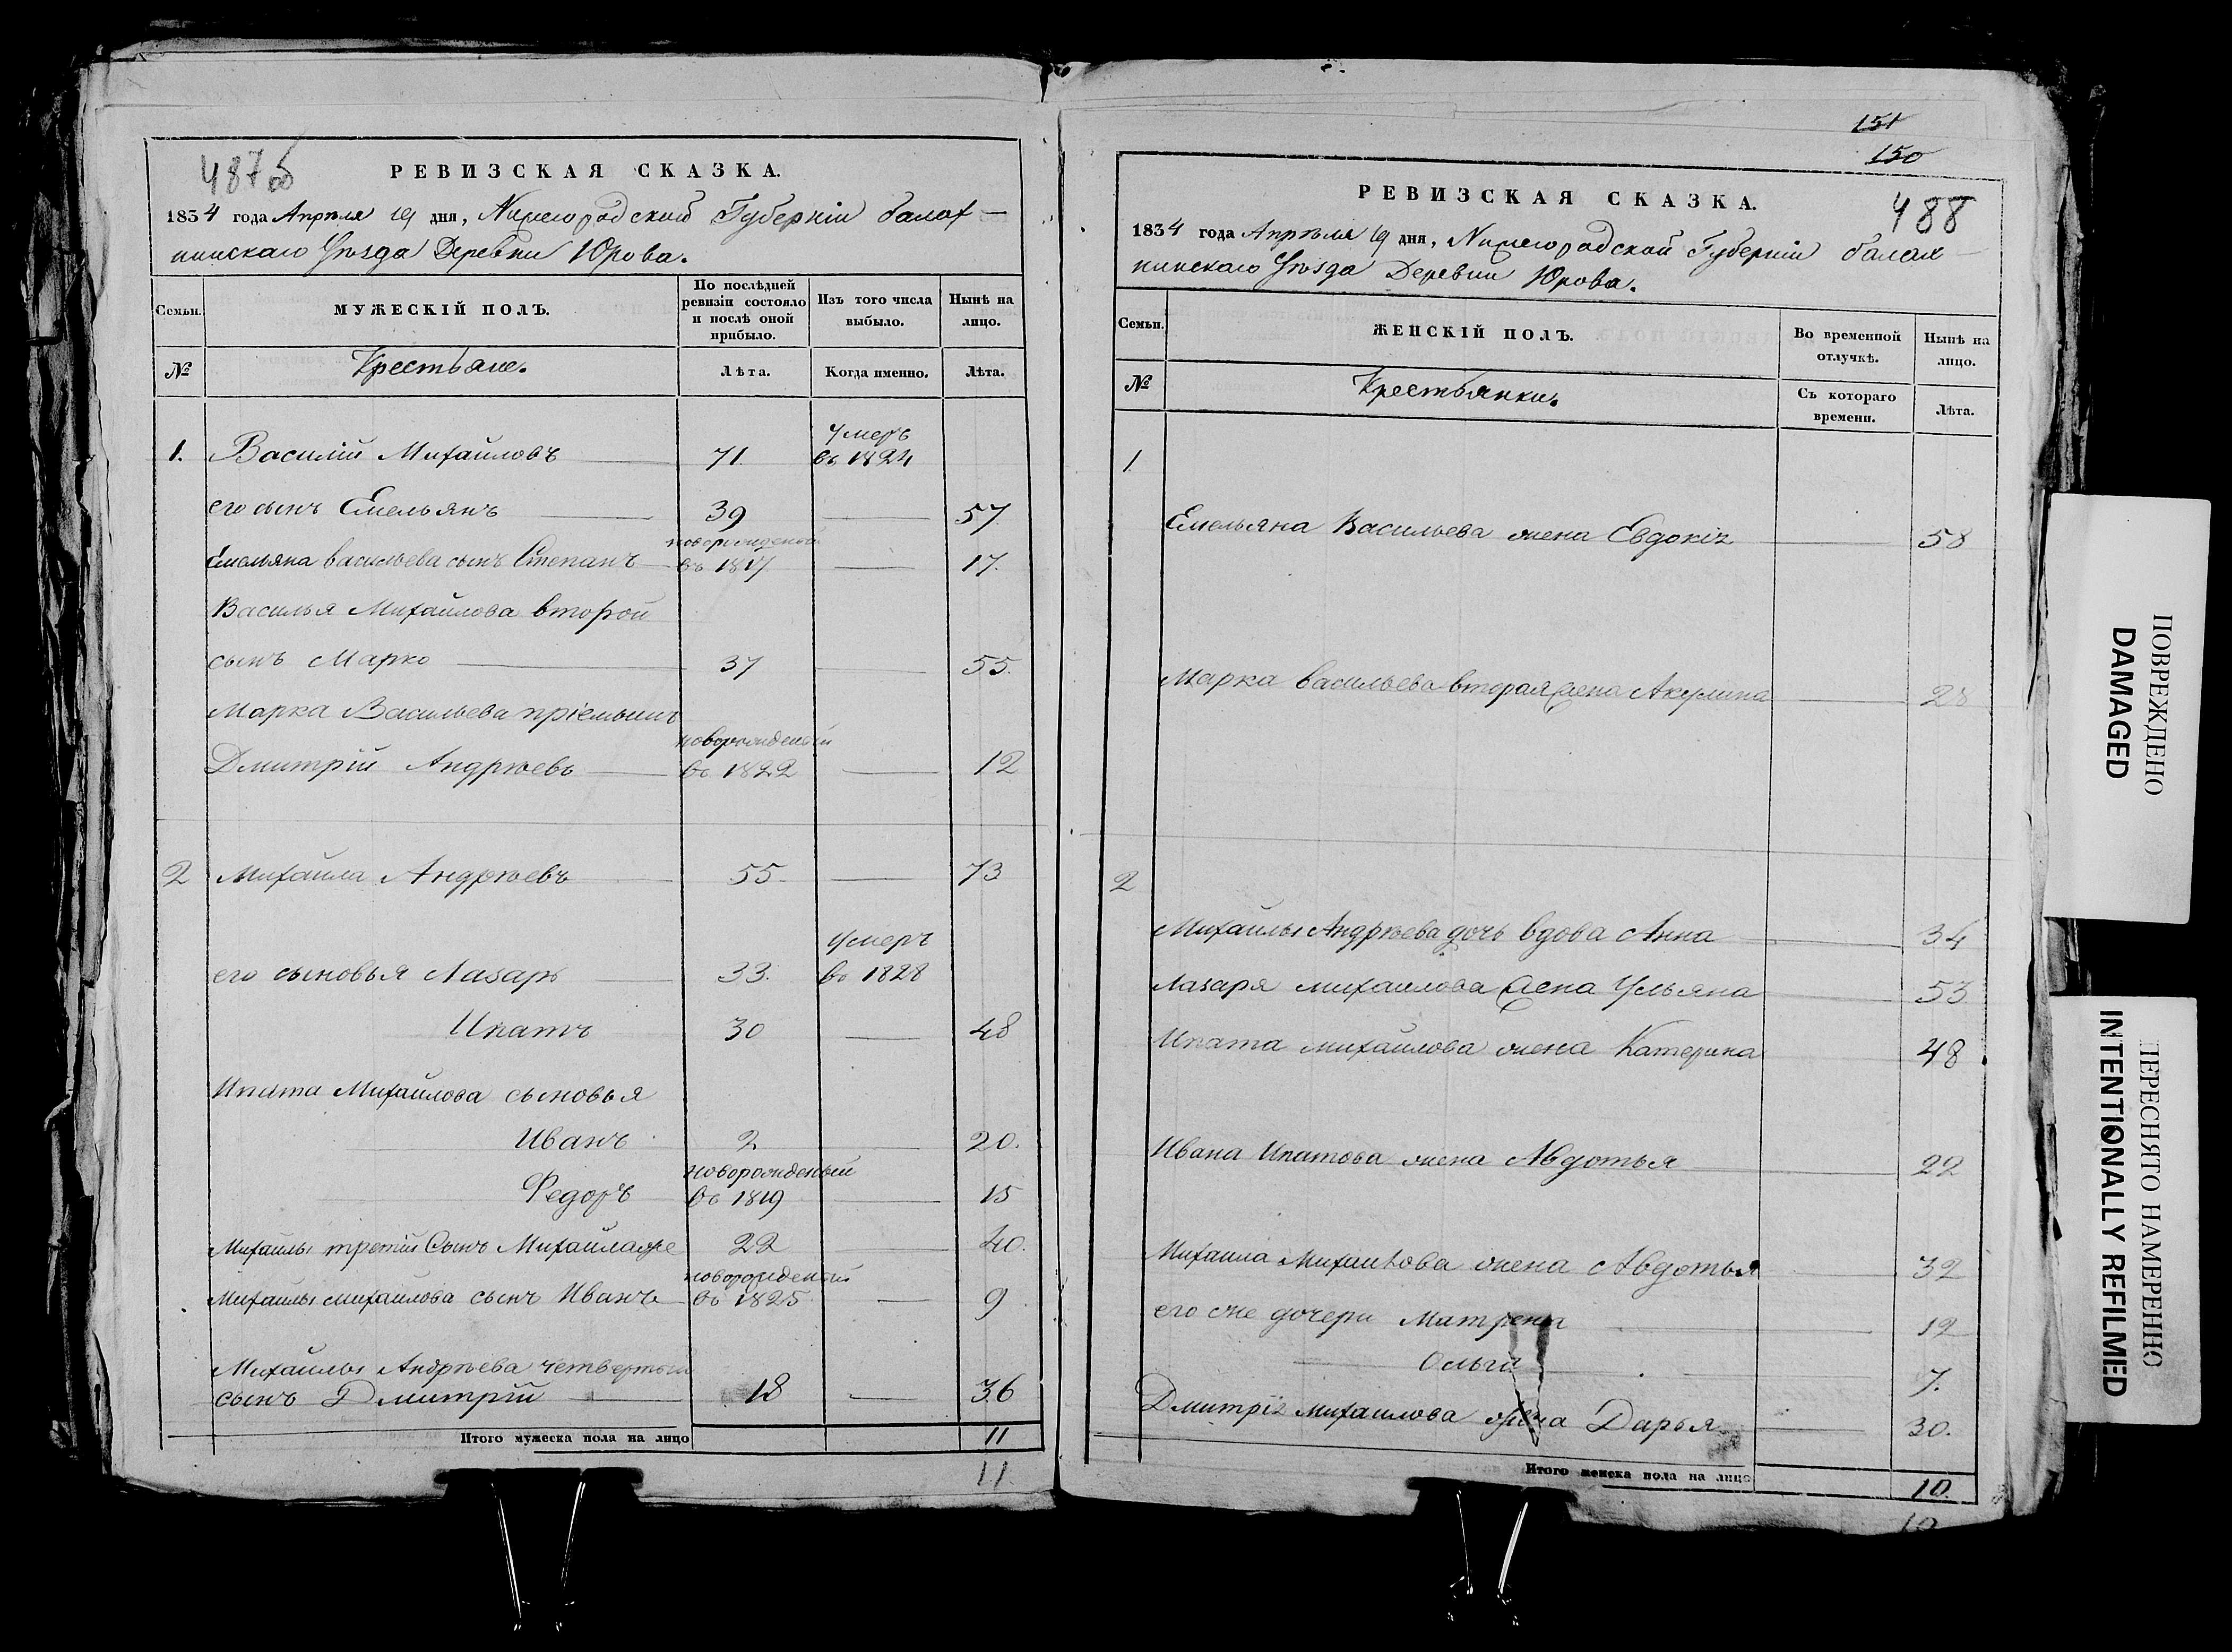 487об
РЕВИЗСКАЯ СКАЗКА.
1834 года Апрѣля 19 дня, Нижегородской Губерніи балах-
нинскаго Уѣзда Деревни Юрова.
Семьи.
МУЖЕСКІЙ ПОЛЪ.
По послѣдней ревизіи состояло и послѣ оной прибыло.
Изъ того числа выбыло.
Нынѣ на лицо.
№
Крестьяне.
Лѣта.
Когда именно.
Лѣта.
умеръ
1. Василій Михайловъ 71 въ 1824
его сынъ Емельянъ 39 57
новорожденой
Емельяна васильева сынъ Степанъ въ 1817 17.
Василья Михайлова второй
сынъ Марко 37 55.
Марка Васильева пріемышъ
новорожденый
Дмитрій Андрѣевъ въ 1822 12
2 Михаила Андрѣевъ 55. 73
умеръ
его сыновья Лазарь 33. во 1828
Ипатъ 30 48
Ипата Михайлова сыновья
Иванъ 2 20.
новорожденый
Федоръ въ 1819 15
Михайлы третій Сынъ Михайлаже 22 40.
новорожденый
Михайлы михайлова сынъ Иванъ во 1825 9
Михайлы Андрѣева четвертый
сынъ Дмитрій 18 36
Итого мужеска пола на лицо 11
11
151
150
488
РЕВИЗСКАЯ СКАЗКА.
1834 года Апрѣля 19 дня, Нижегородской Губерніи балах-
нинскаго Уѣзда Деревни Юрова.
Семьи.
ЖЕНСКІЙ ПОЛЪ.
Во временной отлучкѣ.
Нынѣ на лицо.
№
Крестьянки.
Съ котораго времени.
Лѣта.
1
Емельяна Васильева жена Евдокія 58
Марка васильева вторая жена Акулина 28
2
Михайлы Андрѣева дочь вдова Анна 34
Лазаря михайлова жена Ульяна 53
Ипата михайлова жена Катерина 48
Ивана Ипатова жена Авдотья 22
Михаила Михайлова жена Авдотья 32
его же дочери Матрена 12
Ольга 7.
Дмитрія михайлова жена Дарья 30.
Итого женска пола на лицо 10.
10
ПОВРЕЖДЕНО
DAMAGED
ПЕРЕСНЯТО НАМЕРЕННО
INTENTIONALLY REFILMED